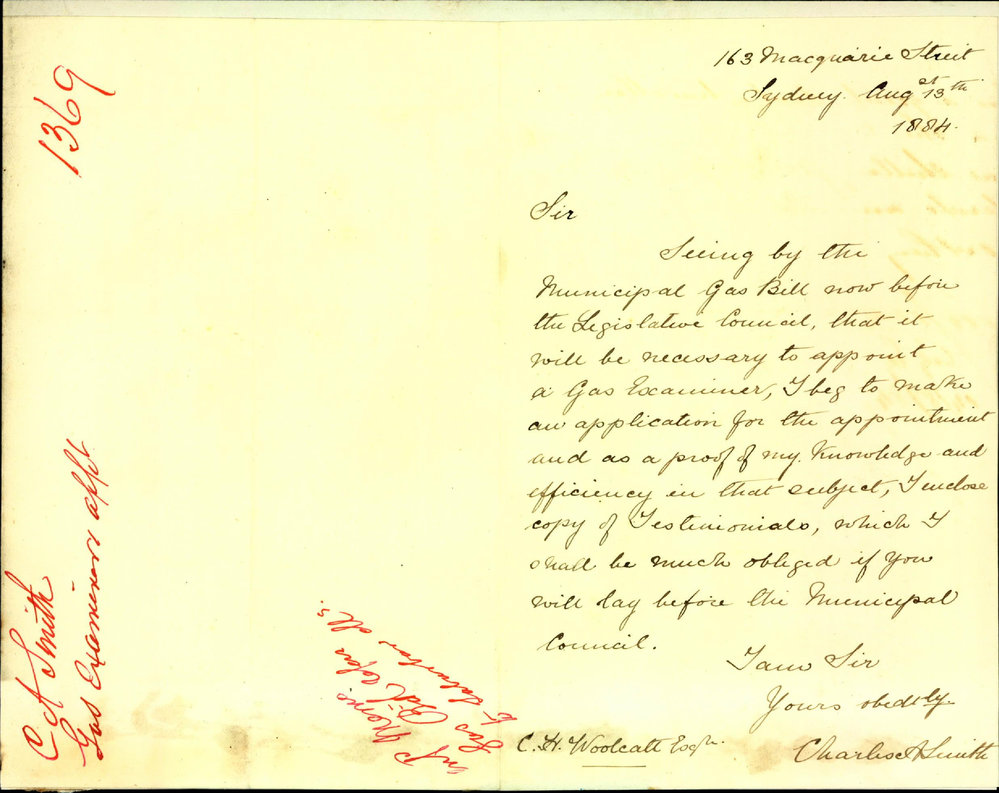 163 Macquarie Street
Sydney. Augst 13th
1884.
Sir
Seeing by the
Municipal Gas Bill now before
the Legislative Council, that it
will be necessary to appoint
a Gas Examiner, I beg to make
an application for the appointment
and as a proof of my Knowledge and
efficiency in that subject, I enclose
copy of Testimonials, which I
shall be much obliged if you
will lay before the Municipal
Council.
I am Sir
Yours obedtly
Charles A Smith
C. H. Woolcott Esqr.
1369
C A Smith
Gas Examiners appt
Gas Bill